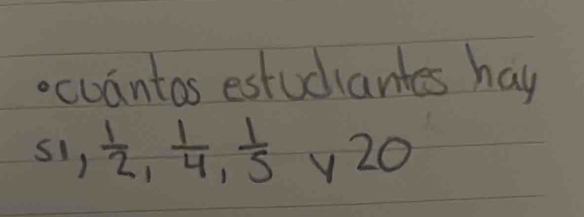 •cuántos estudiantes hay
si, 1/2, 1/4, 1/5 y 20